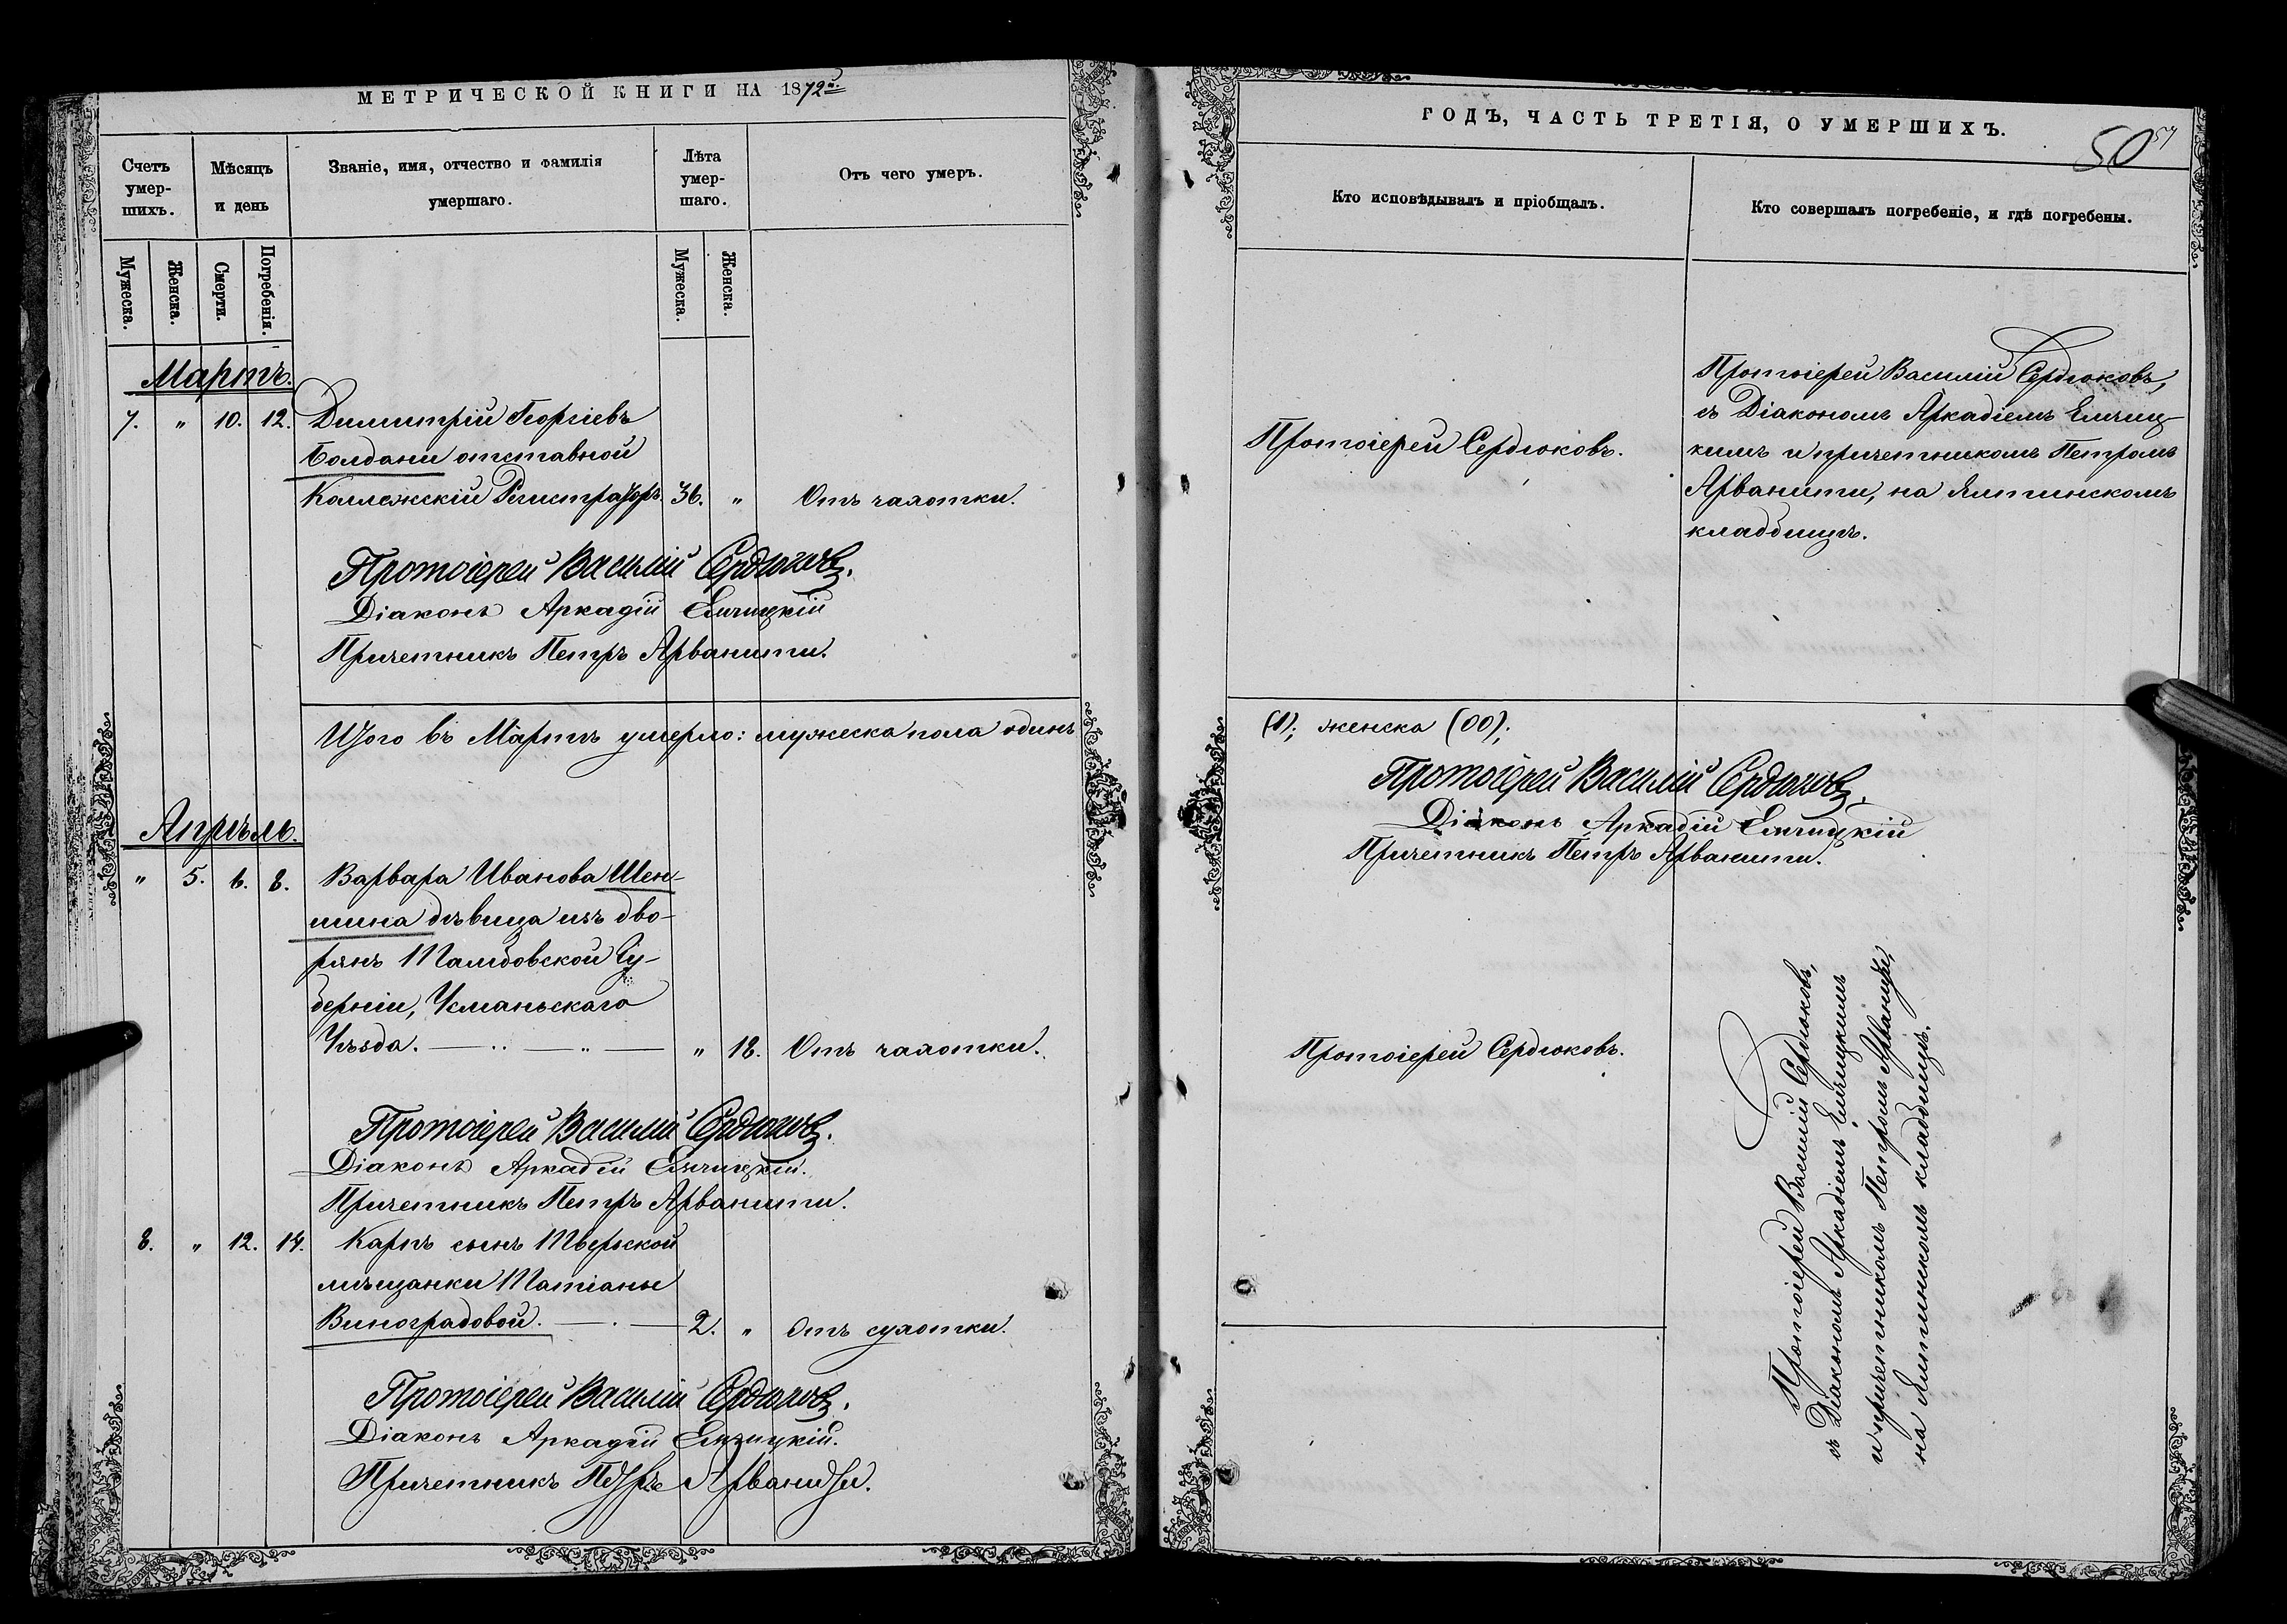 МЕТРИЧЕСКОЙ КНИГИ НА 1872й.
Счетъ умер-шихъ.
Мѣсяцъ и день
Званіе, имя, отчество и фамилія умершаго.
Лѣта умер-шаго.
Отъ чего умеръ.
Мужеска.
Женска.
Смерти.
Погребенія.
Мужеска.
Женска.
Мартъ.
7. " 10. 12. Димитрій Георгіевъ
Болдани отставной
Коллежскій Регистраторъ 36. " Отъ чахотки.
Протоіерей Василій Сердюковъ.
Діаконъ Аркадій Емчицкій
Причетникъ Петръ Арванити.
Итого въ Мартѣ умерло: мужеска пола одинъ
Апрѣль.
" 5. 6. 8. Варвара Иванова Шен-
шина дѣвица изъ дво-
рянъ Тамбовской Гу-
берніи, Усманьскаго
Уѣзда. " 18. Отъ чахотки.
Протоіерей Василій Сердюковъ.
Діаконъ Аркадій Емчицкій.
Причетникъ Петръ Арванити.
8. " 12. 14. Карпъ сынъ Тверской
мѣщанки Татіаны
Виноградовой. 2. " Отъ сухотки.
Протоіерей Василій Сердюковъ.
Діаконъ Аркадій Емчицкій.
Причетникъ Петръ Арванити.
ГОДЪ, ЧАСТЬ ТРЕТІЯ, О УМЕРШИХЪ.
50 57
Кто исповѣдывалъ и пріобщалъ.
Кто совершалъ погребеніе, и гдѣ погребены.
Протоіерей Сердюковъ.
Протоіерей Василій Сердюковъ,
съ Діакономъ Аркадіемъ Емчиц-
кимъ и причетникомъ Петромъ
Арванити, на Ялтинскомъ
кладбищѣ.
(1); женска (00);
Протоіерей Василій Сердюковъ.
Діаконъ Аркадій Емчицкій
Причетникъ Петръ Арванити.
Протоіерей Сердюковъ.
Протоіерей Василій Сердюковъ,
съ Діакономъ Аркадіемъ Емчицкимъ
и причетникомъ Петромъ Арванити,
на Ялтинскомъ кладбищѣ.